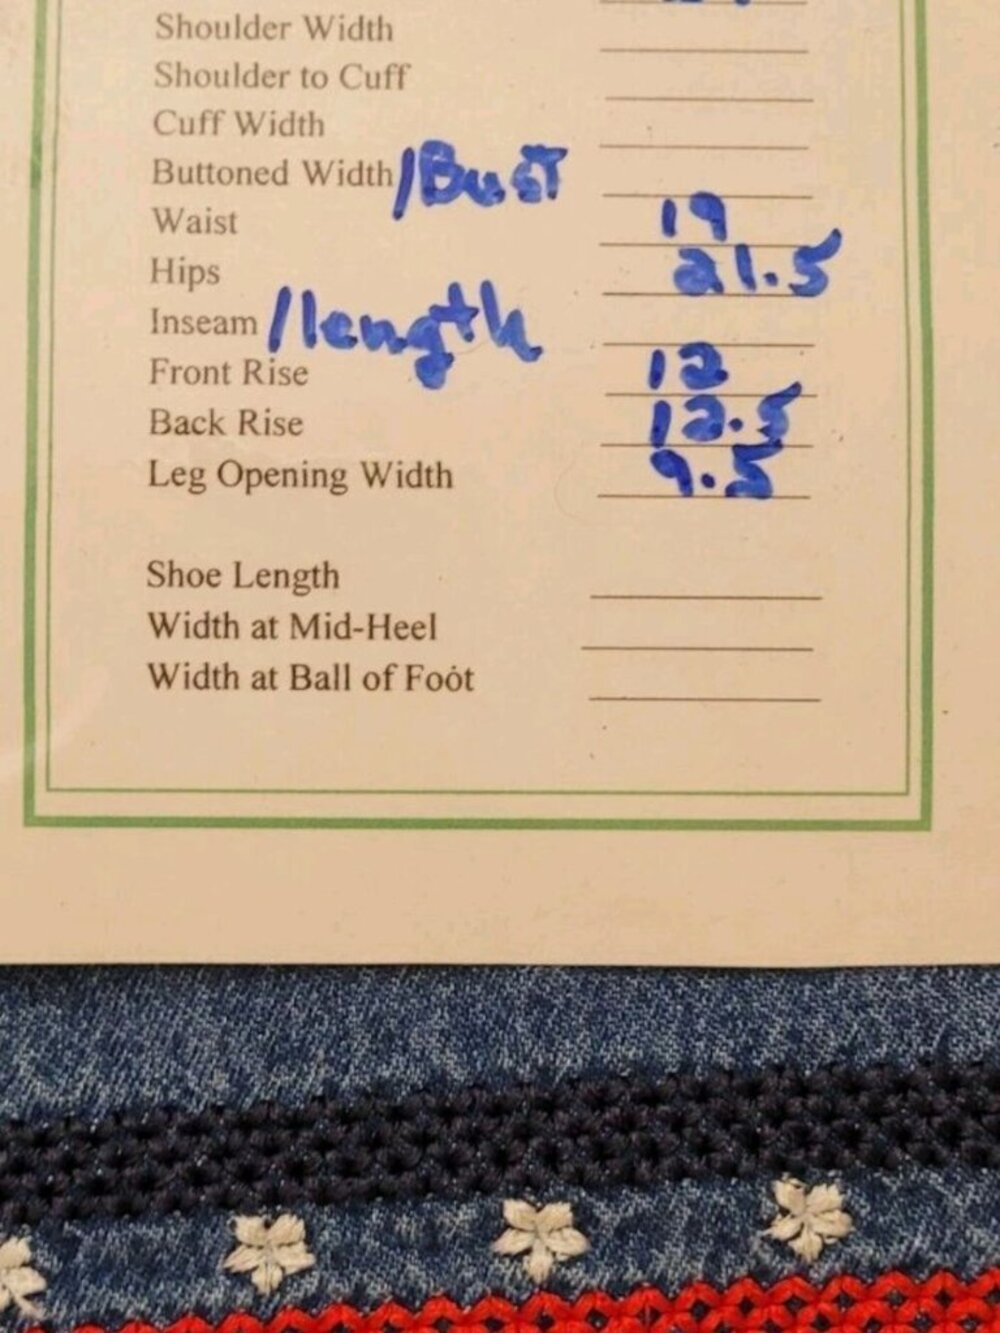 Shoulder Width
Shoulder to Cuff
Cuff Width
Buttoned Width /Bust
Waist 19
Hips 21.5
Inseam /length
Front Rise 12
Back Rise 12.5
Leg Opening Width 9.5
Shoe Length
Width at Mid-Heel
Width at Ball of Foot